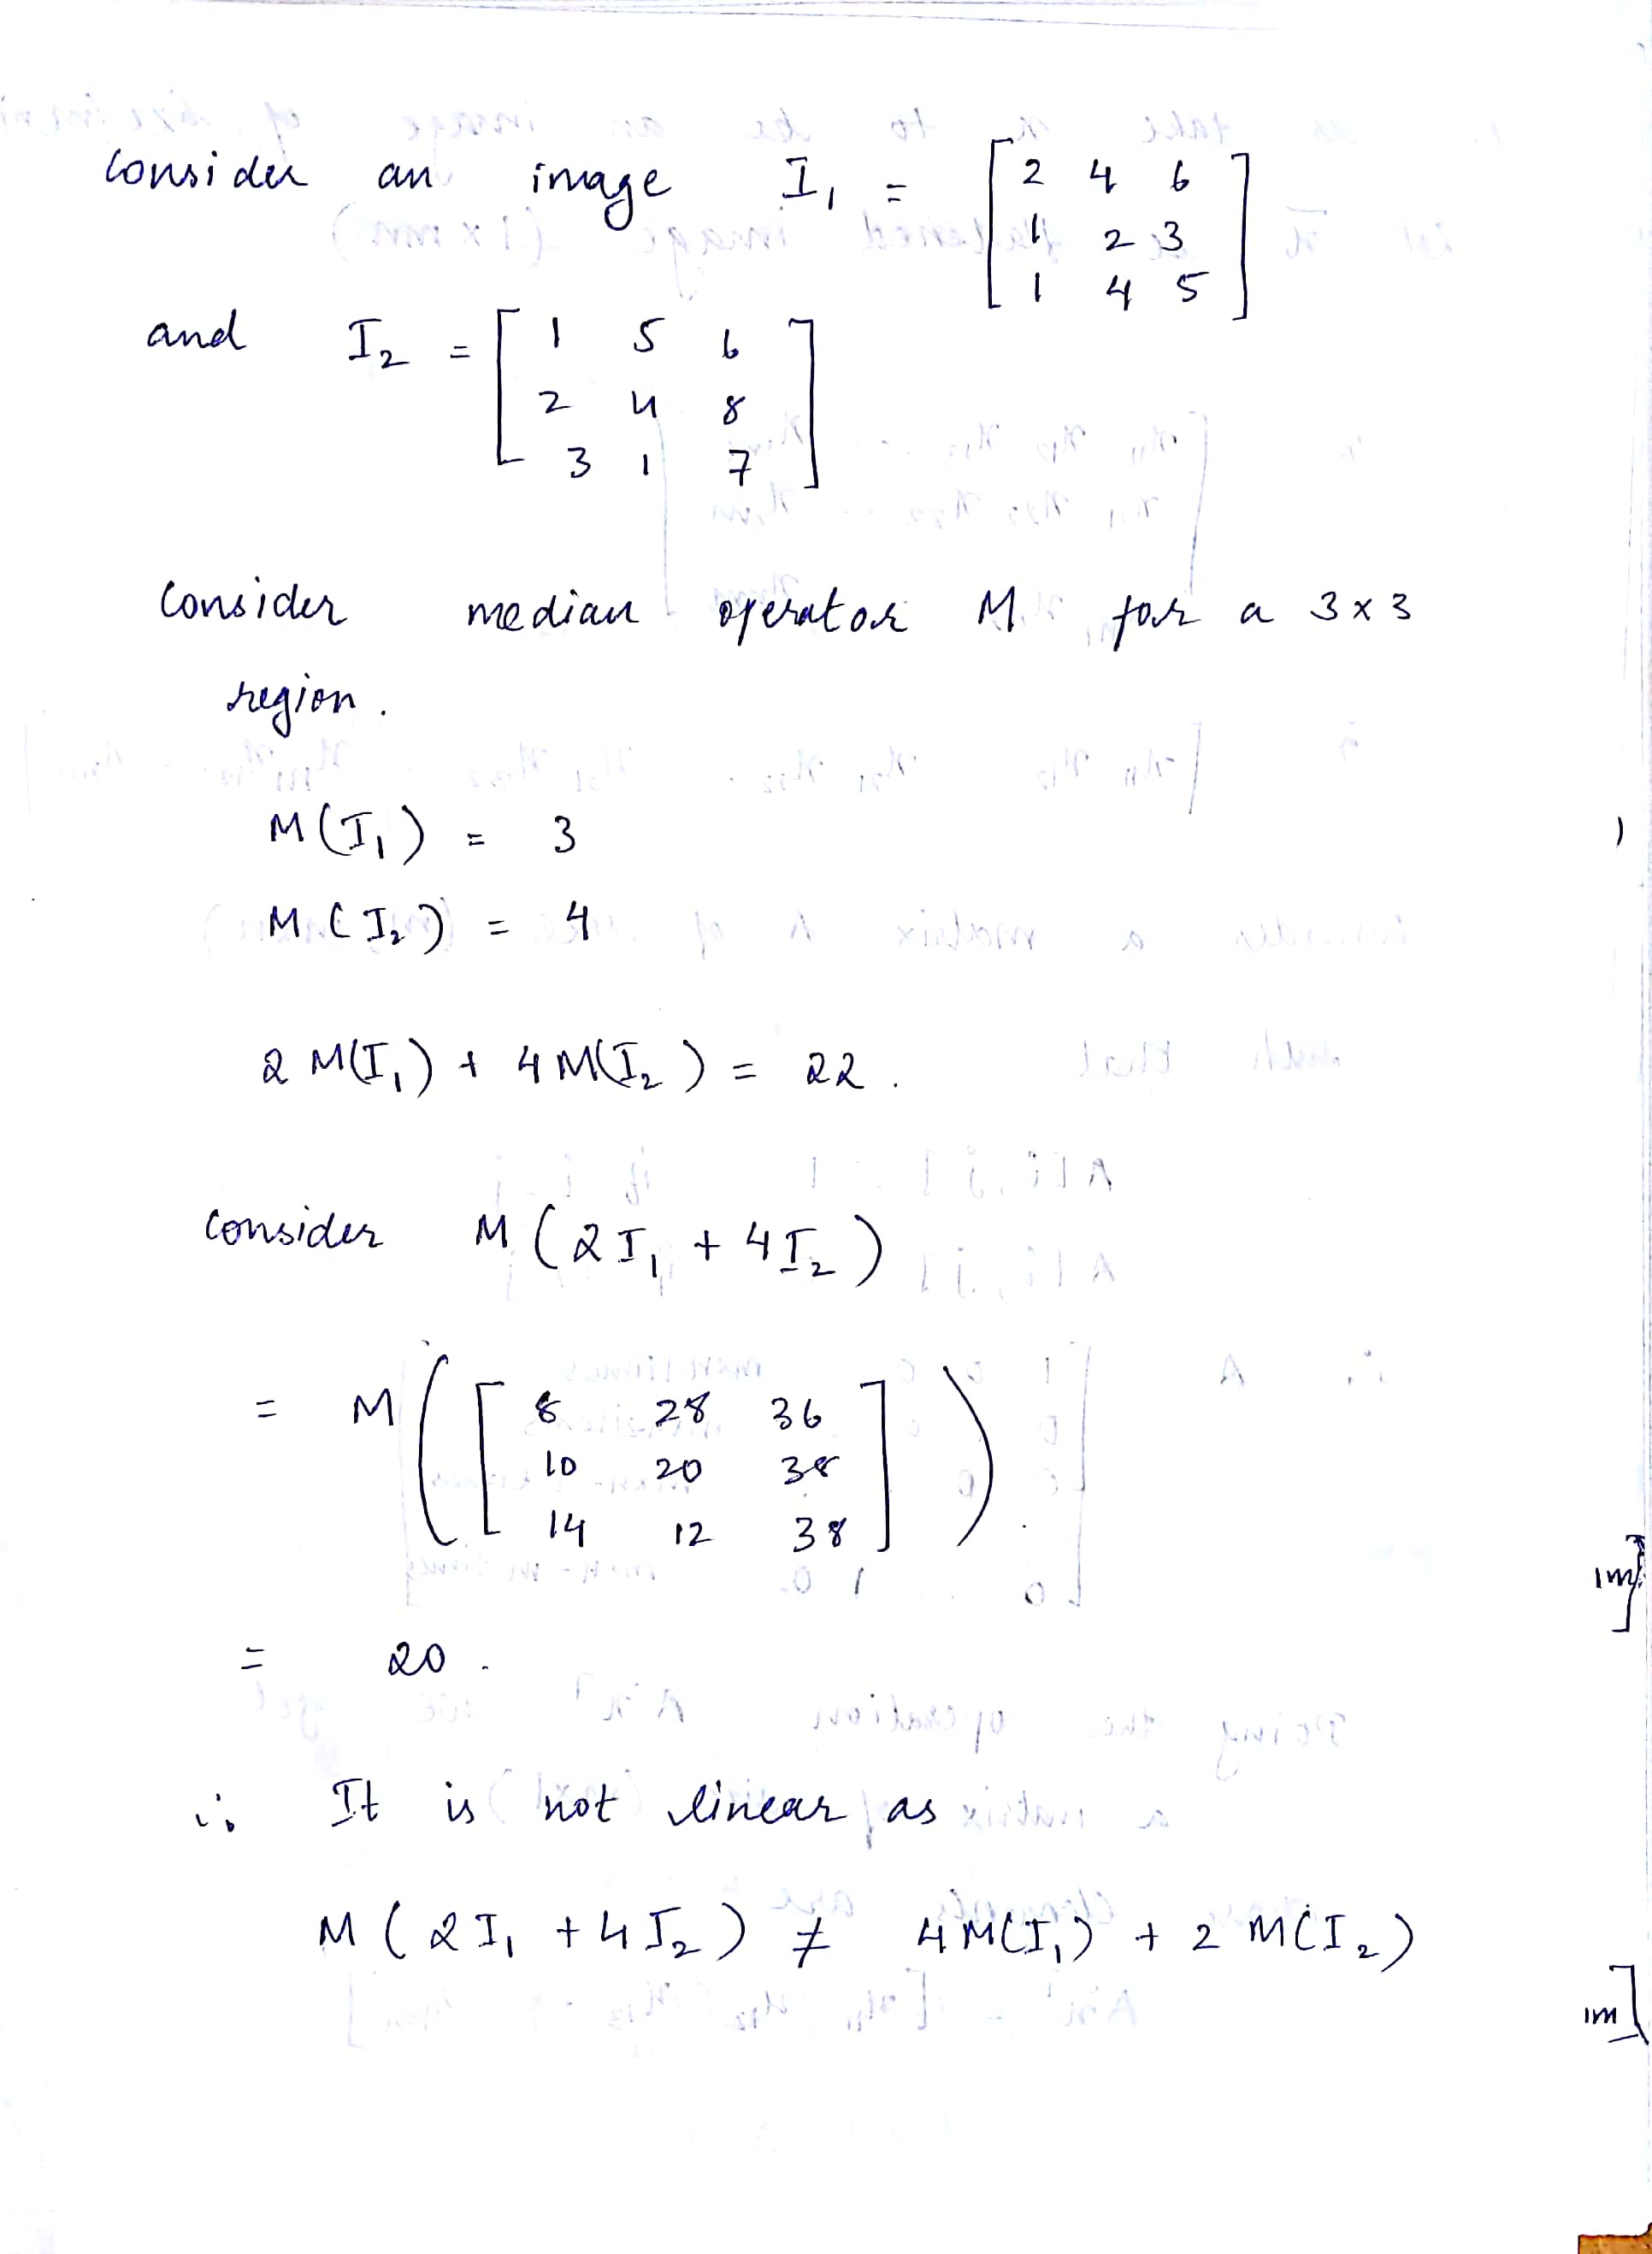 Consider an image I₁ = [ 2 4 6
1 2 3
1 4 5 ]
and I₂ = [ 1 5 6
2 4 8
3 1 7 ]
Consider median operator M for a 3 x 3
region.
M(I₁) = 3
M(I₂) = 4
2 M(I₁) + 4 M(I₂) = 22.
Consider M(2I₁ + 4I₂)
= M( [ 8 28 36
10 20 38
14 12 38 ] )
1m]
= 20.
∴ It is not linear as
M(2I₁ + 4I₂) ≠ 4M(I₁) + 2 M(I₂)
1m]